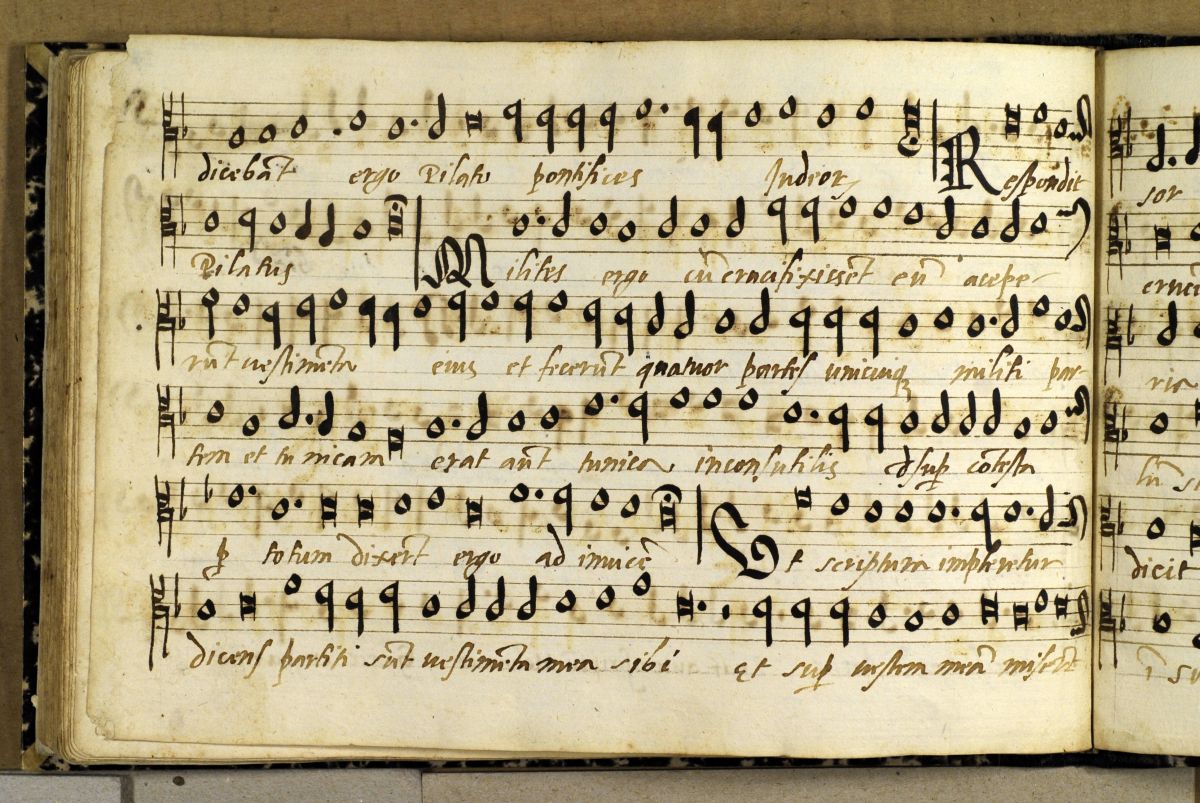 dicebāt ergo Pilato pontifices Iudeor Respondit
Pilatus Milites ergo cū crucifixissēt eū acepe
rūt vestimēta eius et fecerūt quatuor partes unicuiq militi par
tem et tunicam erat aūt tunica inconsutilis dsup cōtexta
p totum dixerūt ergo ad invicē Ut scriptura impleretur
dicens partiti sūt vestimēta mea sibi Et sup vestem meā miserūt
sor
cruci
ria
lū
dicit
ī su